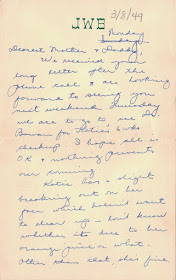 JWB
3/8/49
Monday
Dearest Mother & Daddy,
We received your
long letter after the
phone call & are looking
forward to seeing you
next weekend. Thursday
we are to go to see Dr.
Bowan for Katie's 6 wks
checkup. I hope all is
OK & nothing prevents
our coming
Katie has a slight
breaking out on her
face which doesn't want
to clear up - don't know
whether it's due to her
orange juice or what.
Other than that she's fine